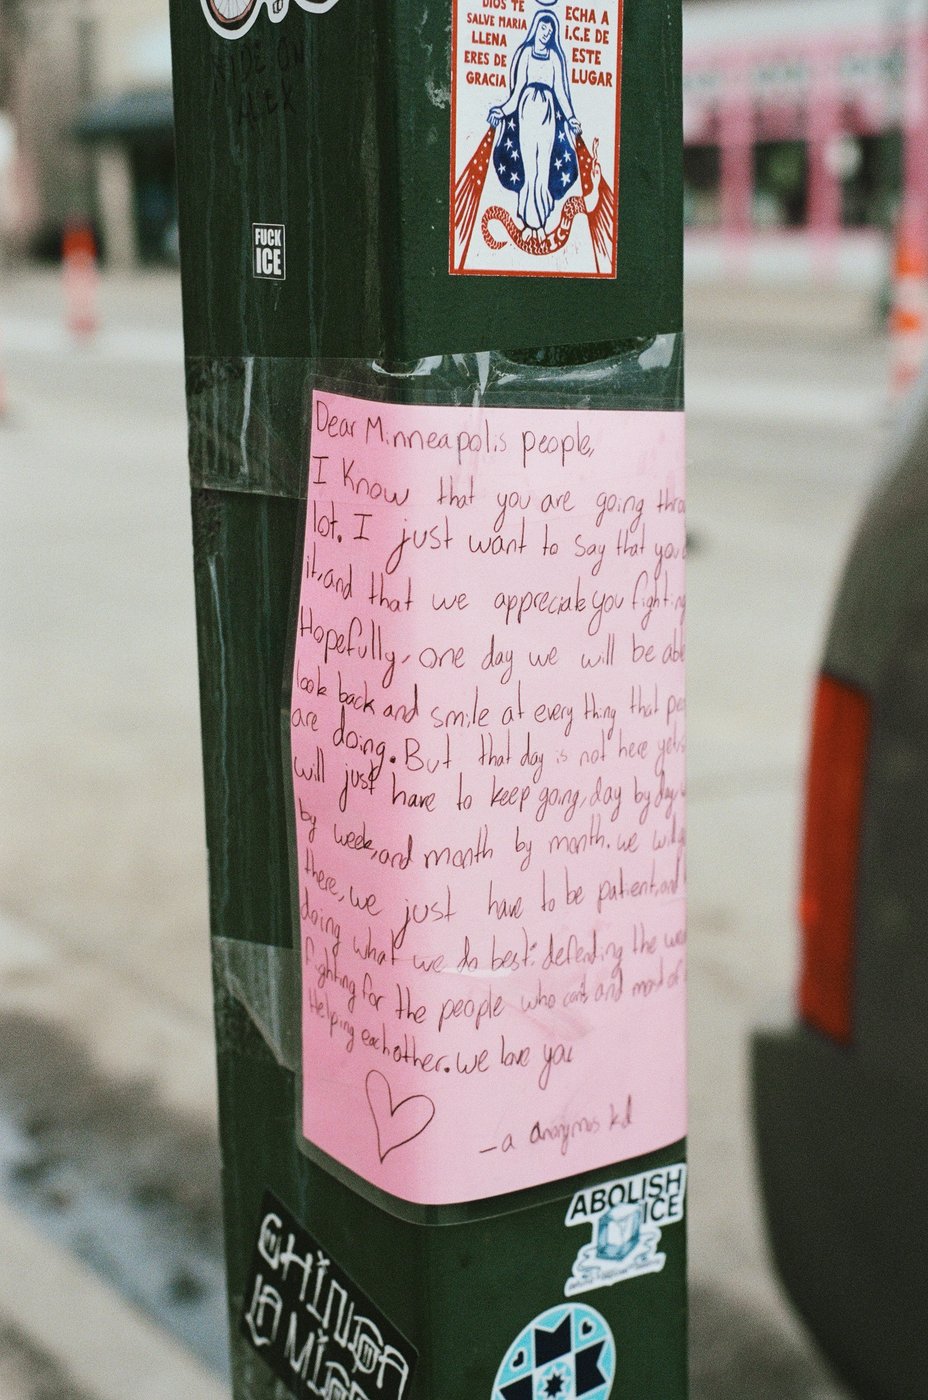 DIOS TE
SALVE MARIA
LLENA
ERES DE
GRACIA
ECHA A
I.C.E DE
ESTE
LUGAR
ICE
FUCK
ICE
Dear Minneapolis people,
I Know that you are going thro
lot. I just want to say that you
it, and that we appreciate you fighting
Hopefully, one day we will be able
look back and smile at every thing that peo
are doing. But that day is not here yet.
will just have to keep going, day by day,
by week, and month by month. we will
there, we just have to be patient, and
doing what we do best: defending the wea
fighting for the people who can't and most of
Helping each other. we love you
– a anonymos kid
ABOLISH
ICE
CHINGA
LA MIGRA